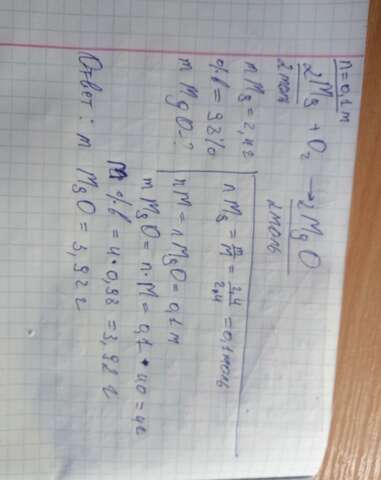 n=0,1м
2Mg + O₂ → 2MgO
2моль 2моль
m Mg = 2,4г
% b = 98%
m MgO-?
n Mg = m/M = 2,4/2,4 = 0,1моль
n M = n MgO = 0,1 м
m MgO = n · M = 0,1 · 40 = 4г
% b = 4 · 0,98 = 3,92 г
Ответ: m MgO = 3,92 г